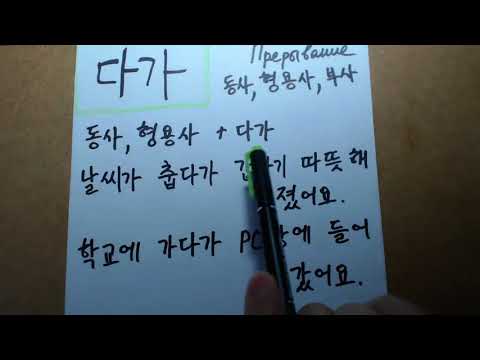 다가
Прерывание
동사, 형용사, 부사
동사, 형용사 + 다가
날씨가 춥다가 따뜻해
졌어요.
학교에 가다가 들어
갔어요.